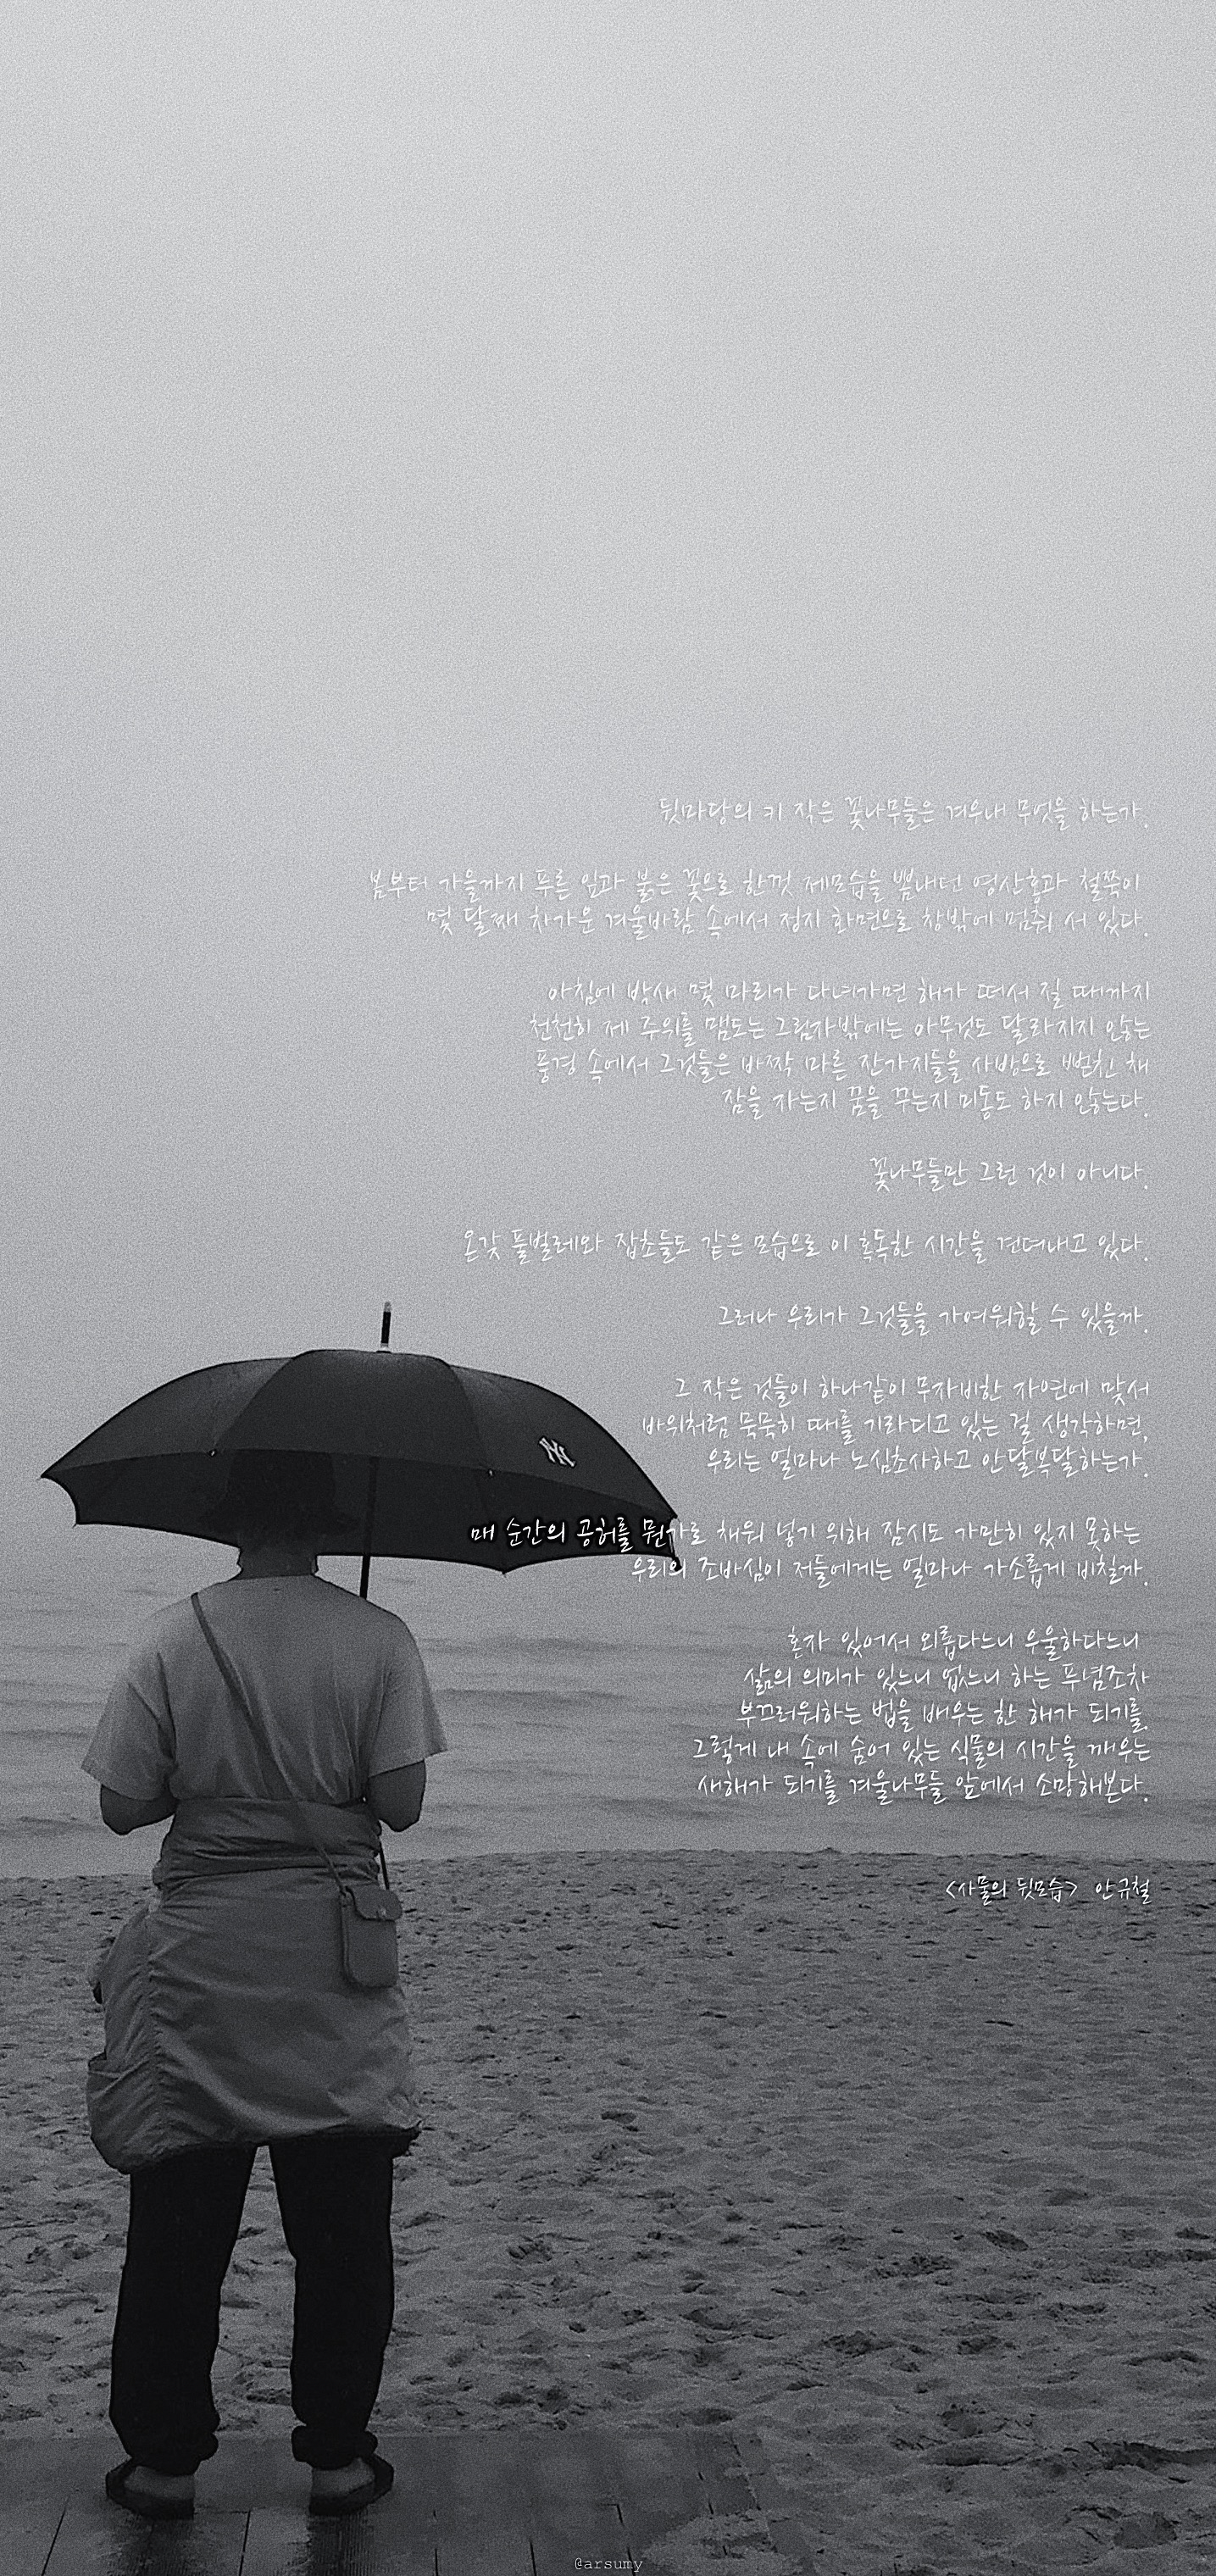 뒷마당의 키 작은 꽃나무들은 겨우내 무엇을 하는가.
봄부터 가을까지 푸른 잎과 붉은 꽃으로 한껏 제모습을 뽐내던 영산홍과 철쭉이
몇 달째 차가운 겨울바람 속에서 정지 화면으로 창밖에 멈춰 서 있다.
아침에 박새 몇 마리가 다녀가면 해가 떠서 질 때까지
천천히 제 주위를 맴도는 그림자밖에는 아무것도 달라지지 않는
풍경 속에서 그것들은 바짝 마른 잔가지들을 사방으로 뻗친 채
잠을 자는지 꿈을 꾸는지 미동도 하지 않는다.
꽃나무들만 그런 것이 아니다.
온갖 풀벌레와 잡초들도 같은 모습으로 이 혹독한 시간을 견뎌내고 있다.
그러나 우리가 그것들을 가여워할 수 있을까.
그 작은 것들이 하나같이 무자비한 자연에 맞서
바위처럼 묵묵히 때를 기라디고 있는 걸 생각하면,
우리는 얼마나 노심초사하고 안달복달하는가.
NY
매 순간의 공허를 뭔가로 채워 넣기 위해 잠시도 가만히 있지 못하는
우리의 조바심이 저들에게는 얼마나 가소롭게 비칠까.
혼자 있어서 외롭다느니 우울하다느니
삶의 의미가 있느니 없느니 하는 푸념조차
부끄러워하는 법을 배우는 한 해가 되기를.
그렇게 내 속에 숨어 있는 식물의 시간을 깨우는
새해가 되기를 겨울나무들 앞에서 소망해본다.
<사물의 뒷모습> 안규철
@arsumy